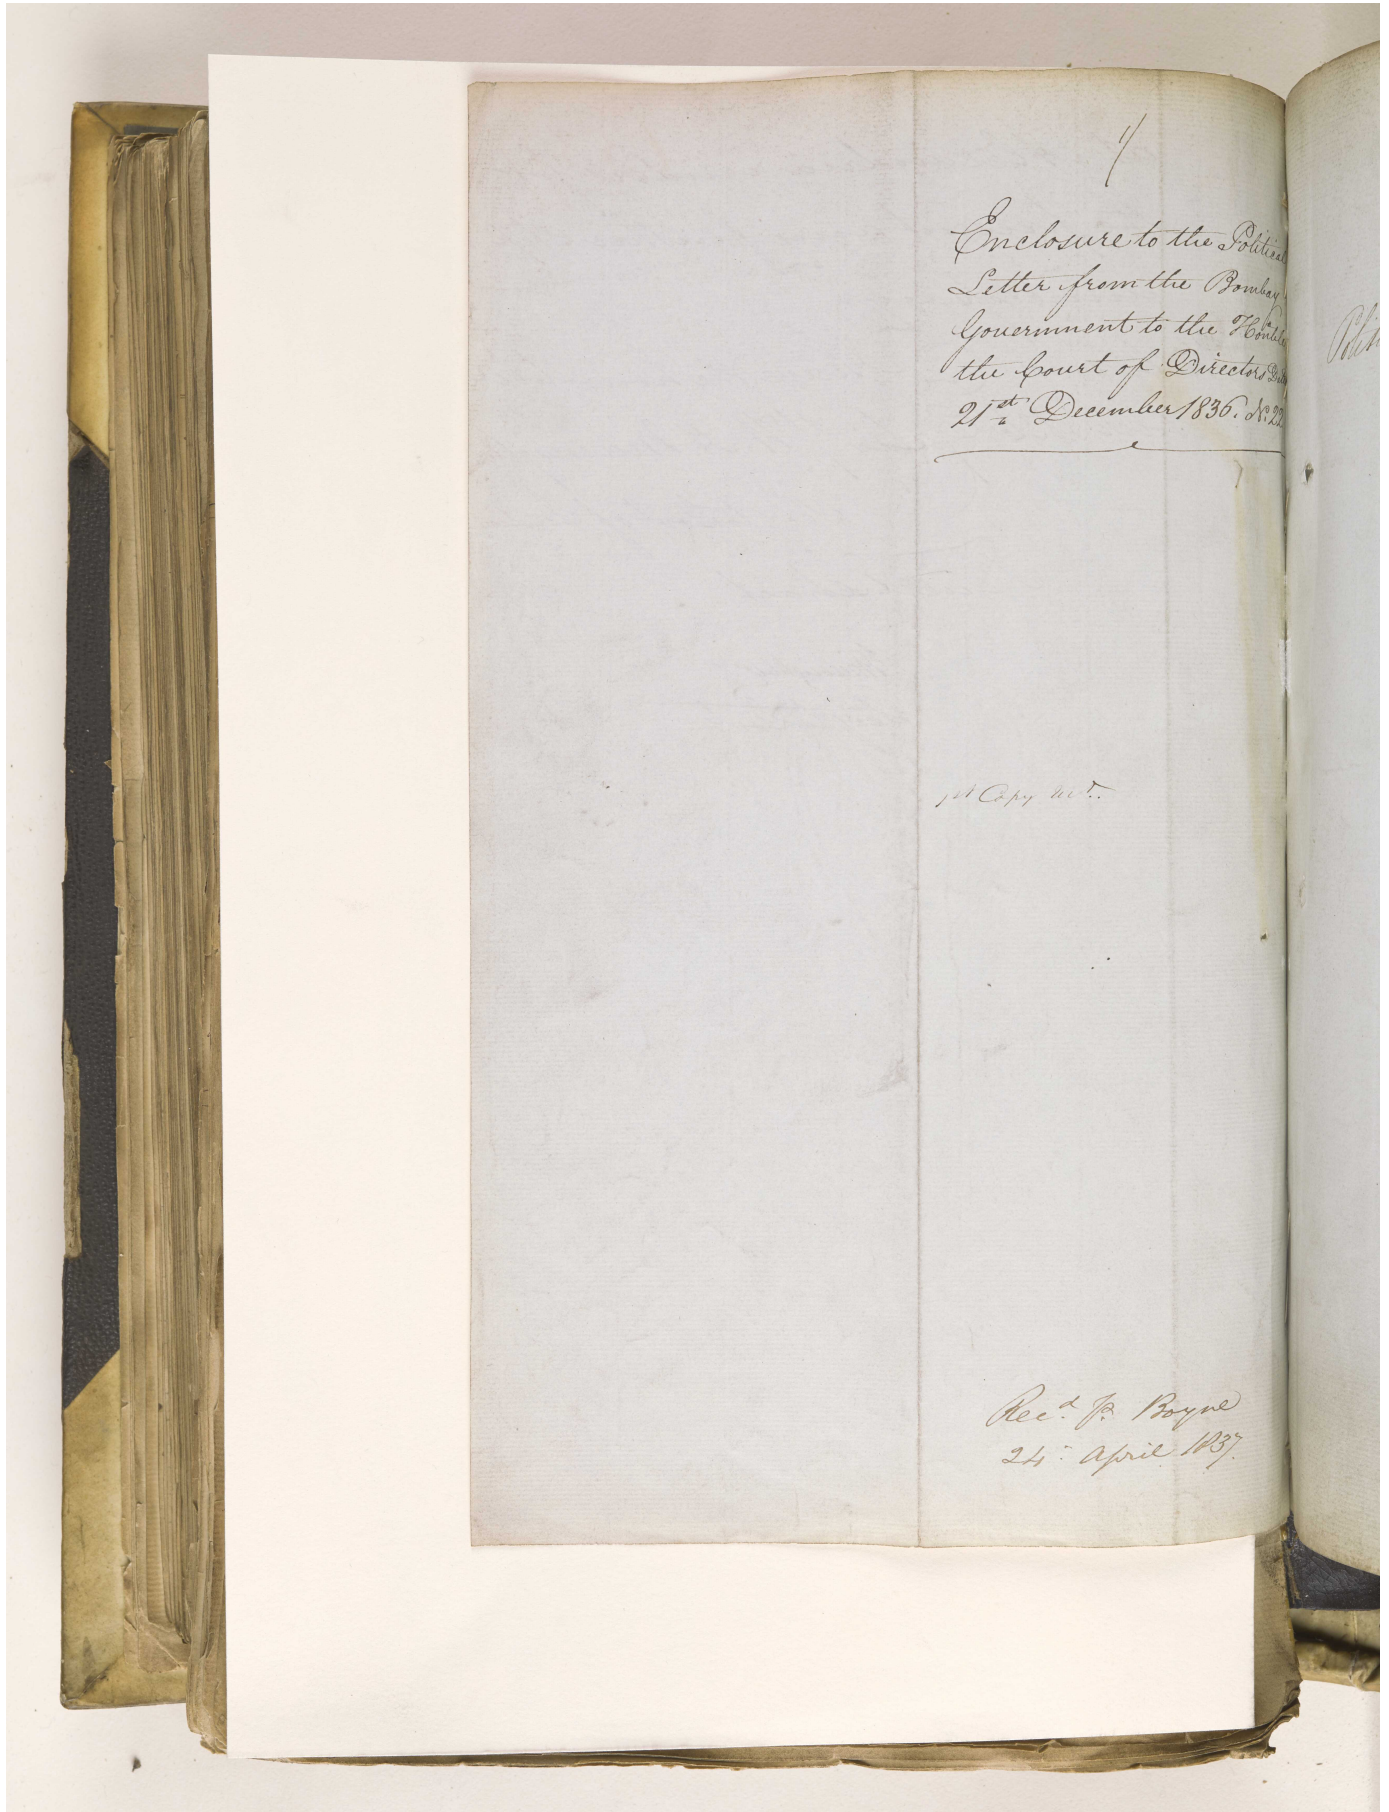 1/
Enclosure to the Political
Letter from the Bombay
Government to the Honble
the Court of Directors
21st December 1836. No. 22
1st Copy
Recd. p. Boyne
24: April 1837.